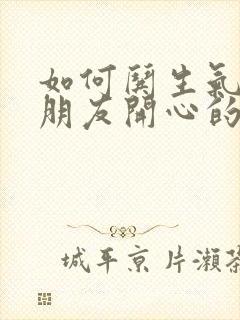 如何閑生氣
朋友開心的
城平京 片瀨茶